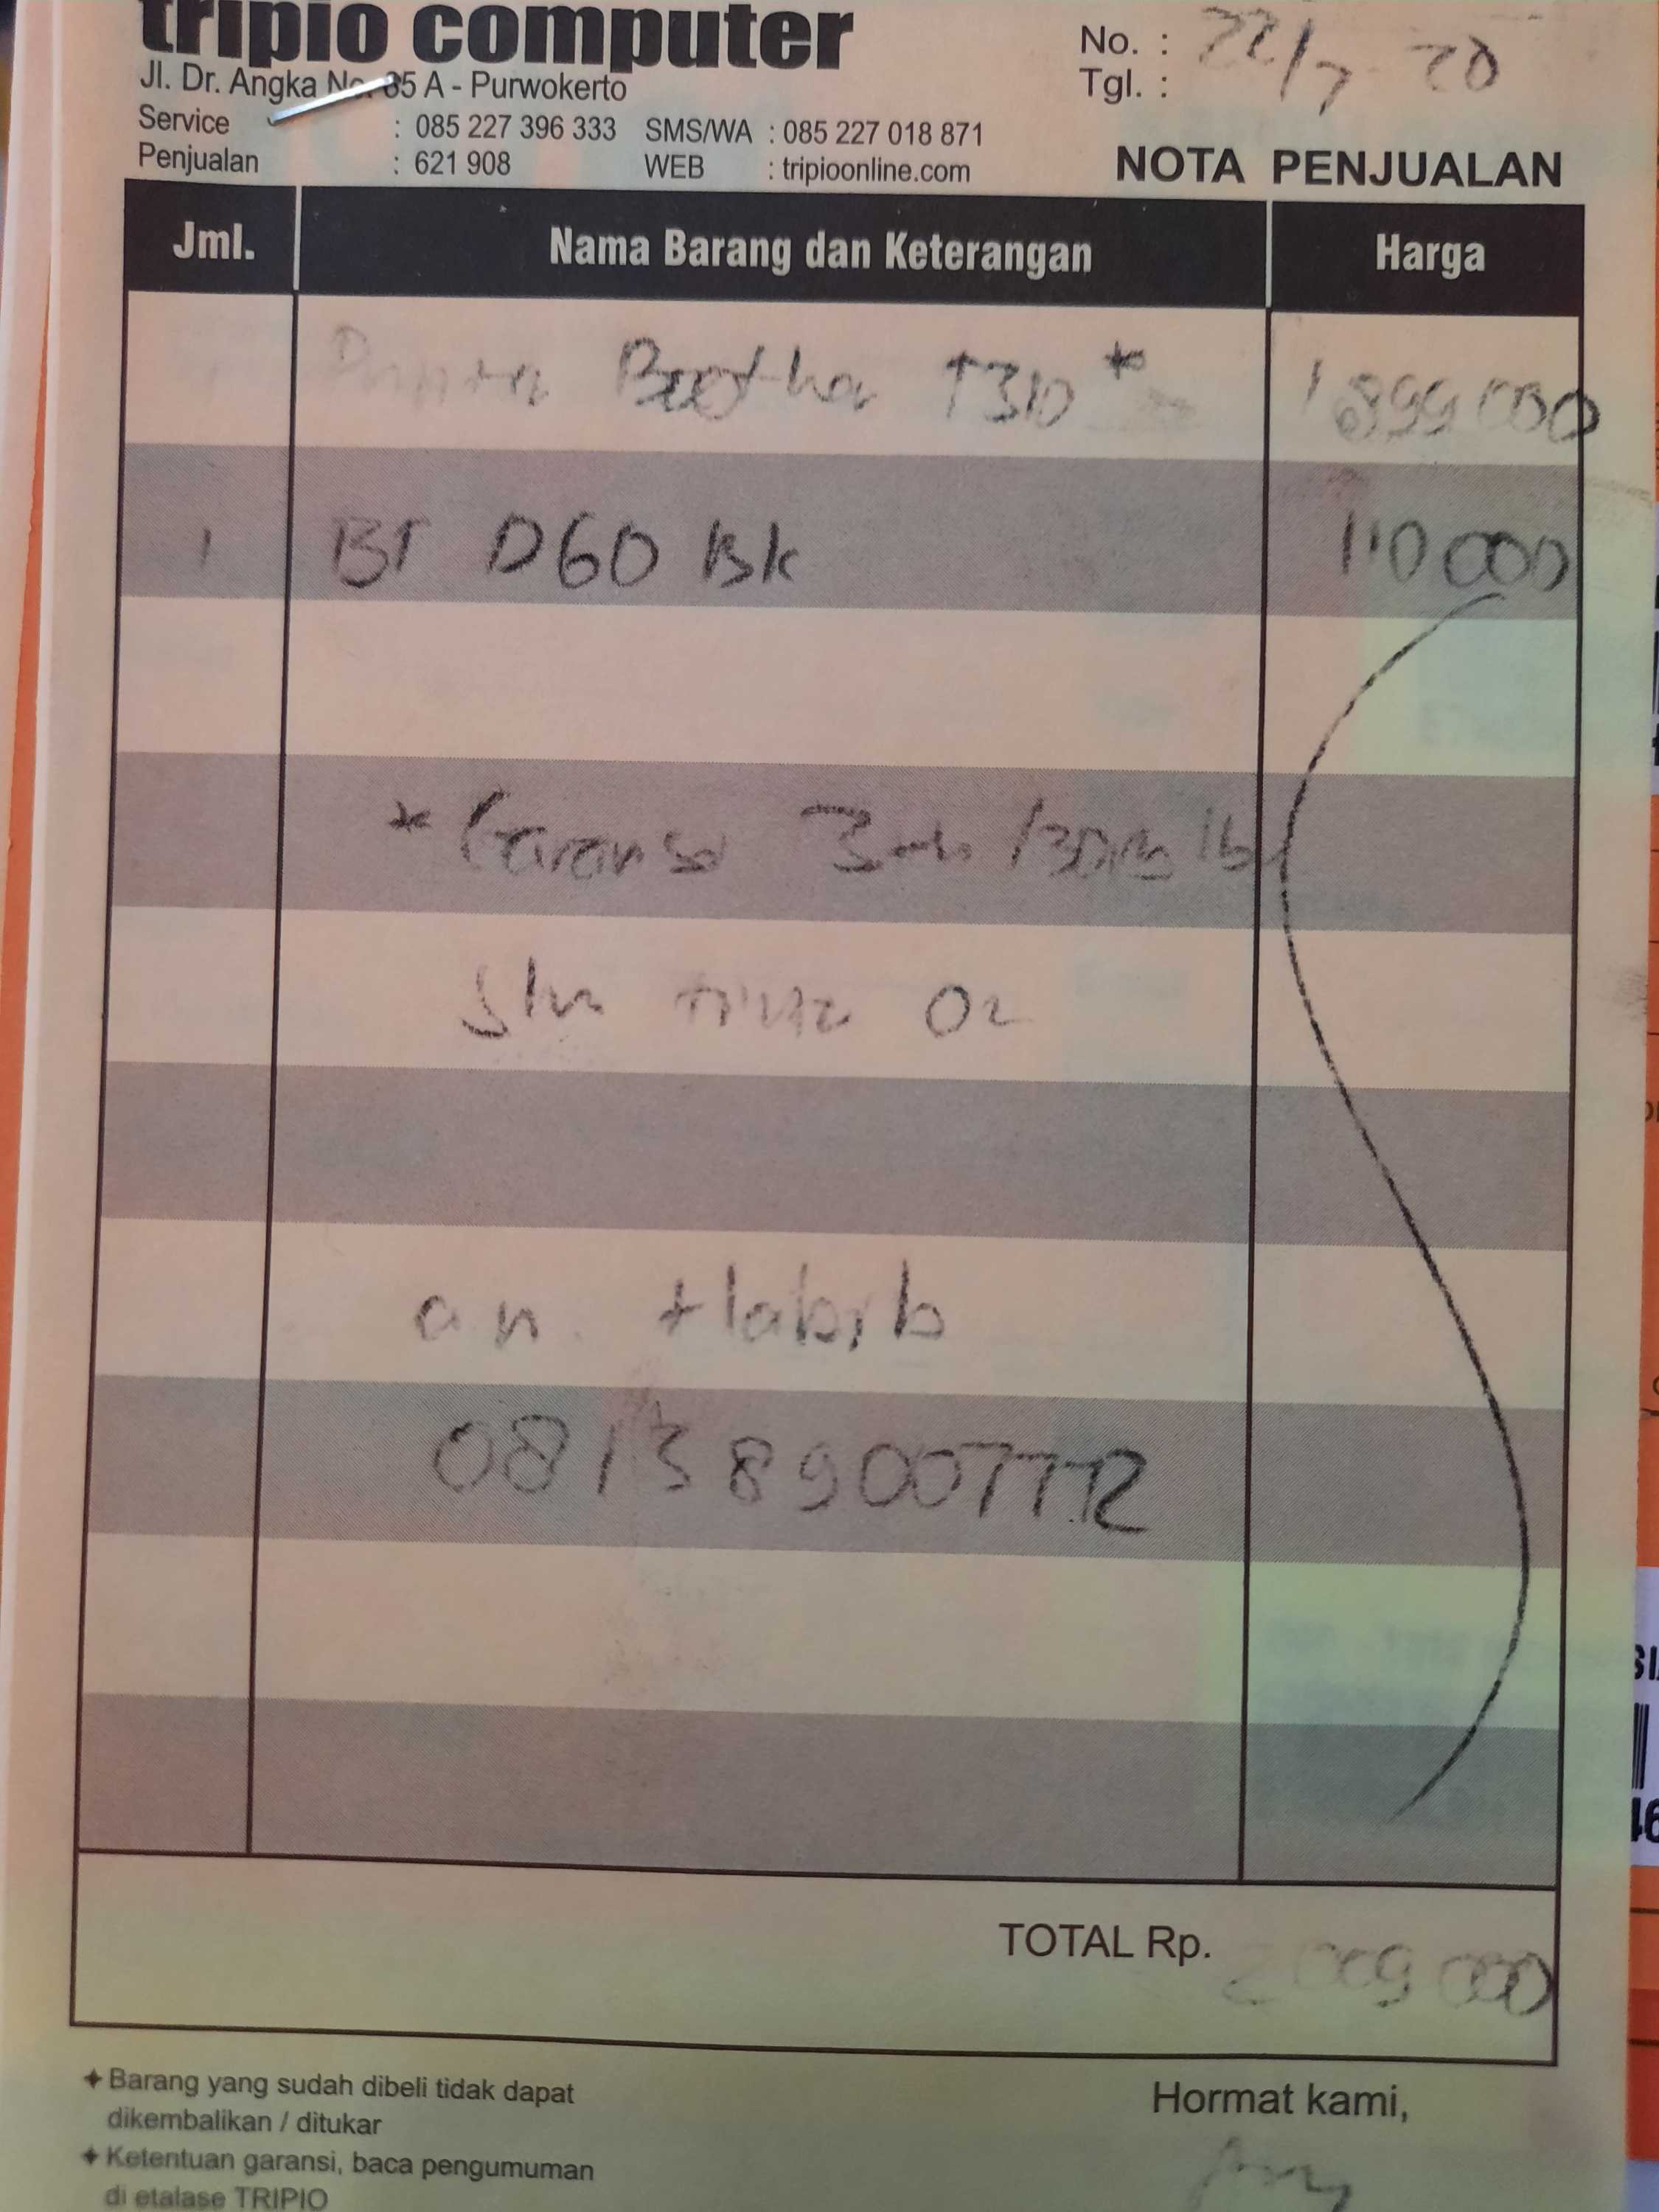 tripio computer
No. : 22/7 20
Jl. Dr. Angka No. 85 A - Purwokerto
Tgl. :
Service : 085 227 396 333 SMS/WA : 085 227 018 871
Penjualan : 621 908 WEB : tripioonline.com
NOTA PENJUALAN
Jml. Nama Barang dan Keterangan Harga
Printer Brother T310 * 1 899 000
1 BT D60 Bk 110 000
* Garansi 3 th / 30 rb lbr
an. Habib
081389007772
TOTAL Rp. 2 009 000
✦ Barang yang sudah dibeli tidak dapat
dikembalikan / ditukar
✦ Ketentuan garansi, baca pengumuman
di etalase TRIPIO
Hormat kami,